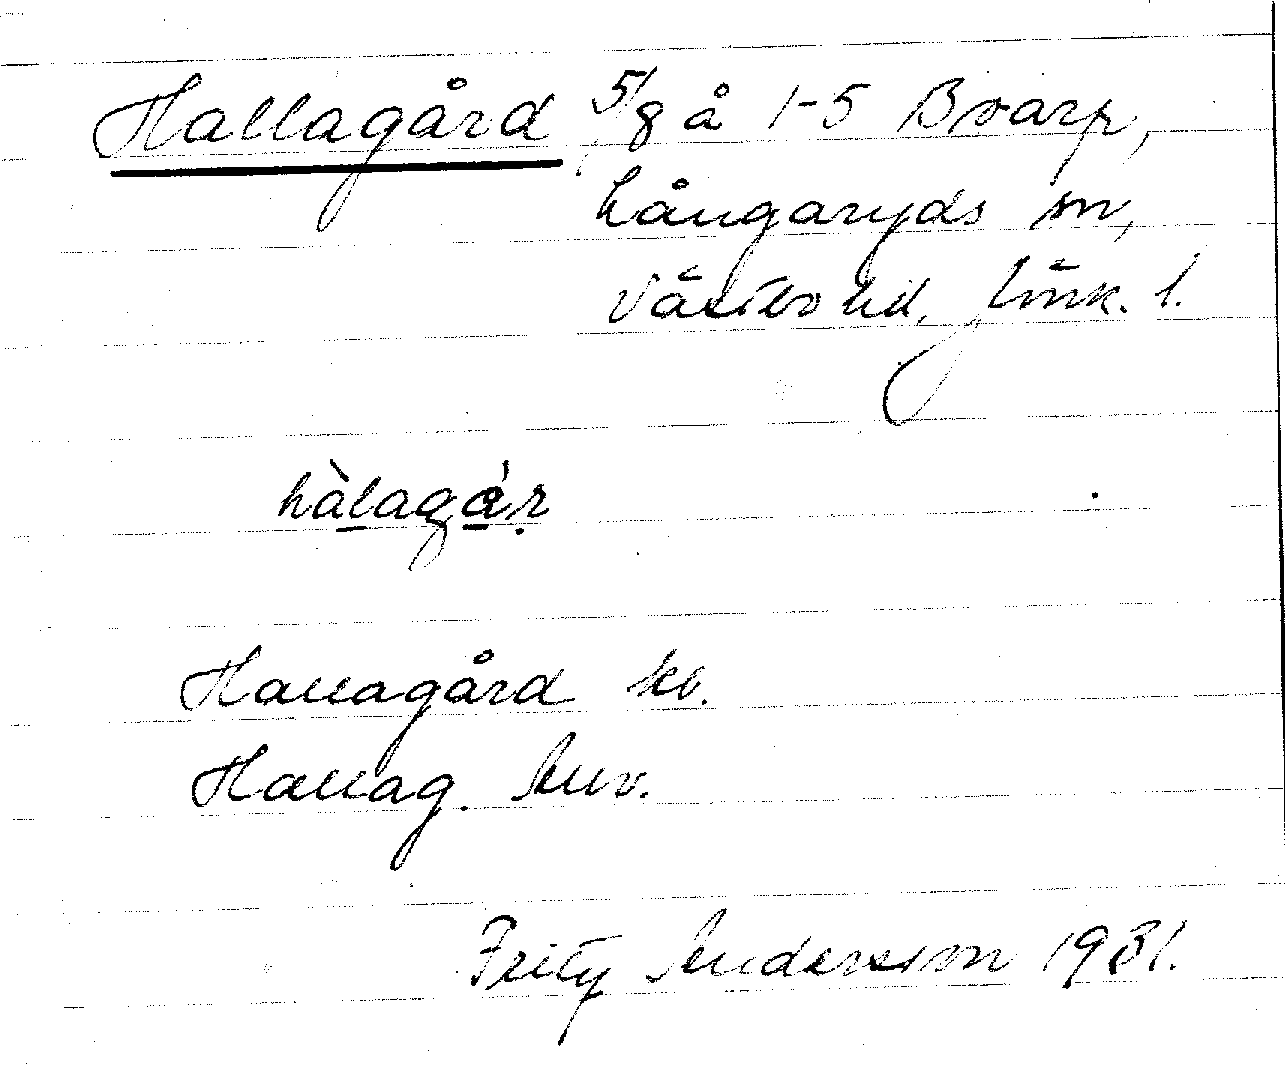 Hallagård 5/8 å 1-5 Boarp,
Långaryds sn,
Västbo hd, Jönk. l.
hàlagár
Hallagård kb.
Hallag. Anv.
Fritz Andersson 1931.